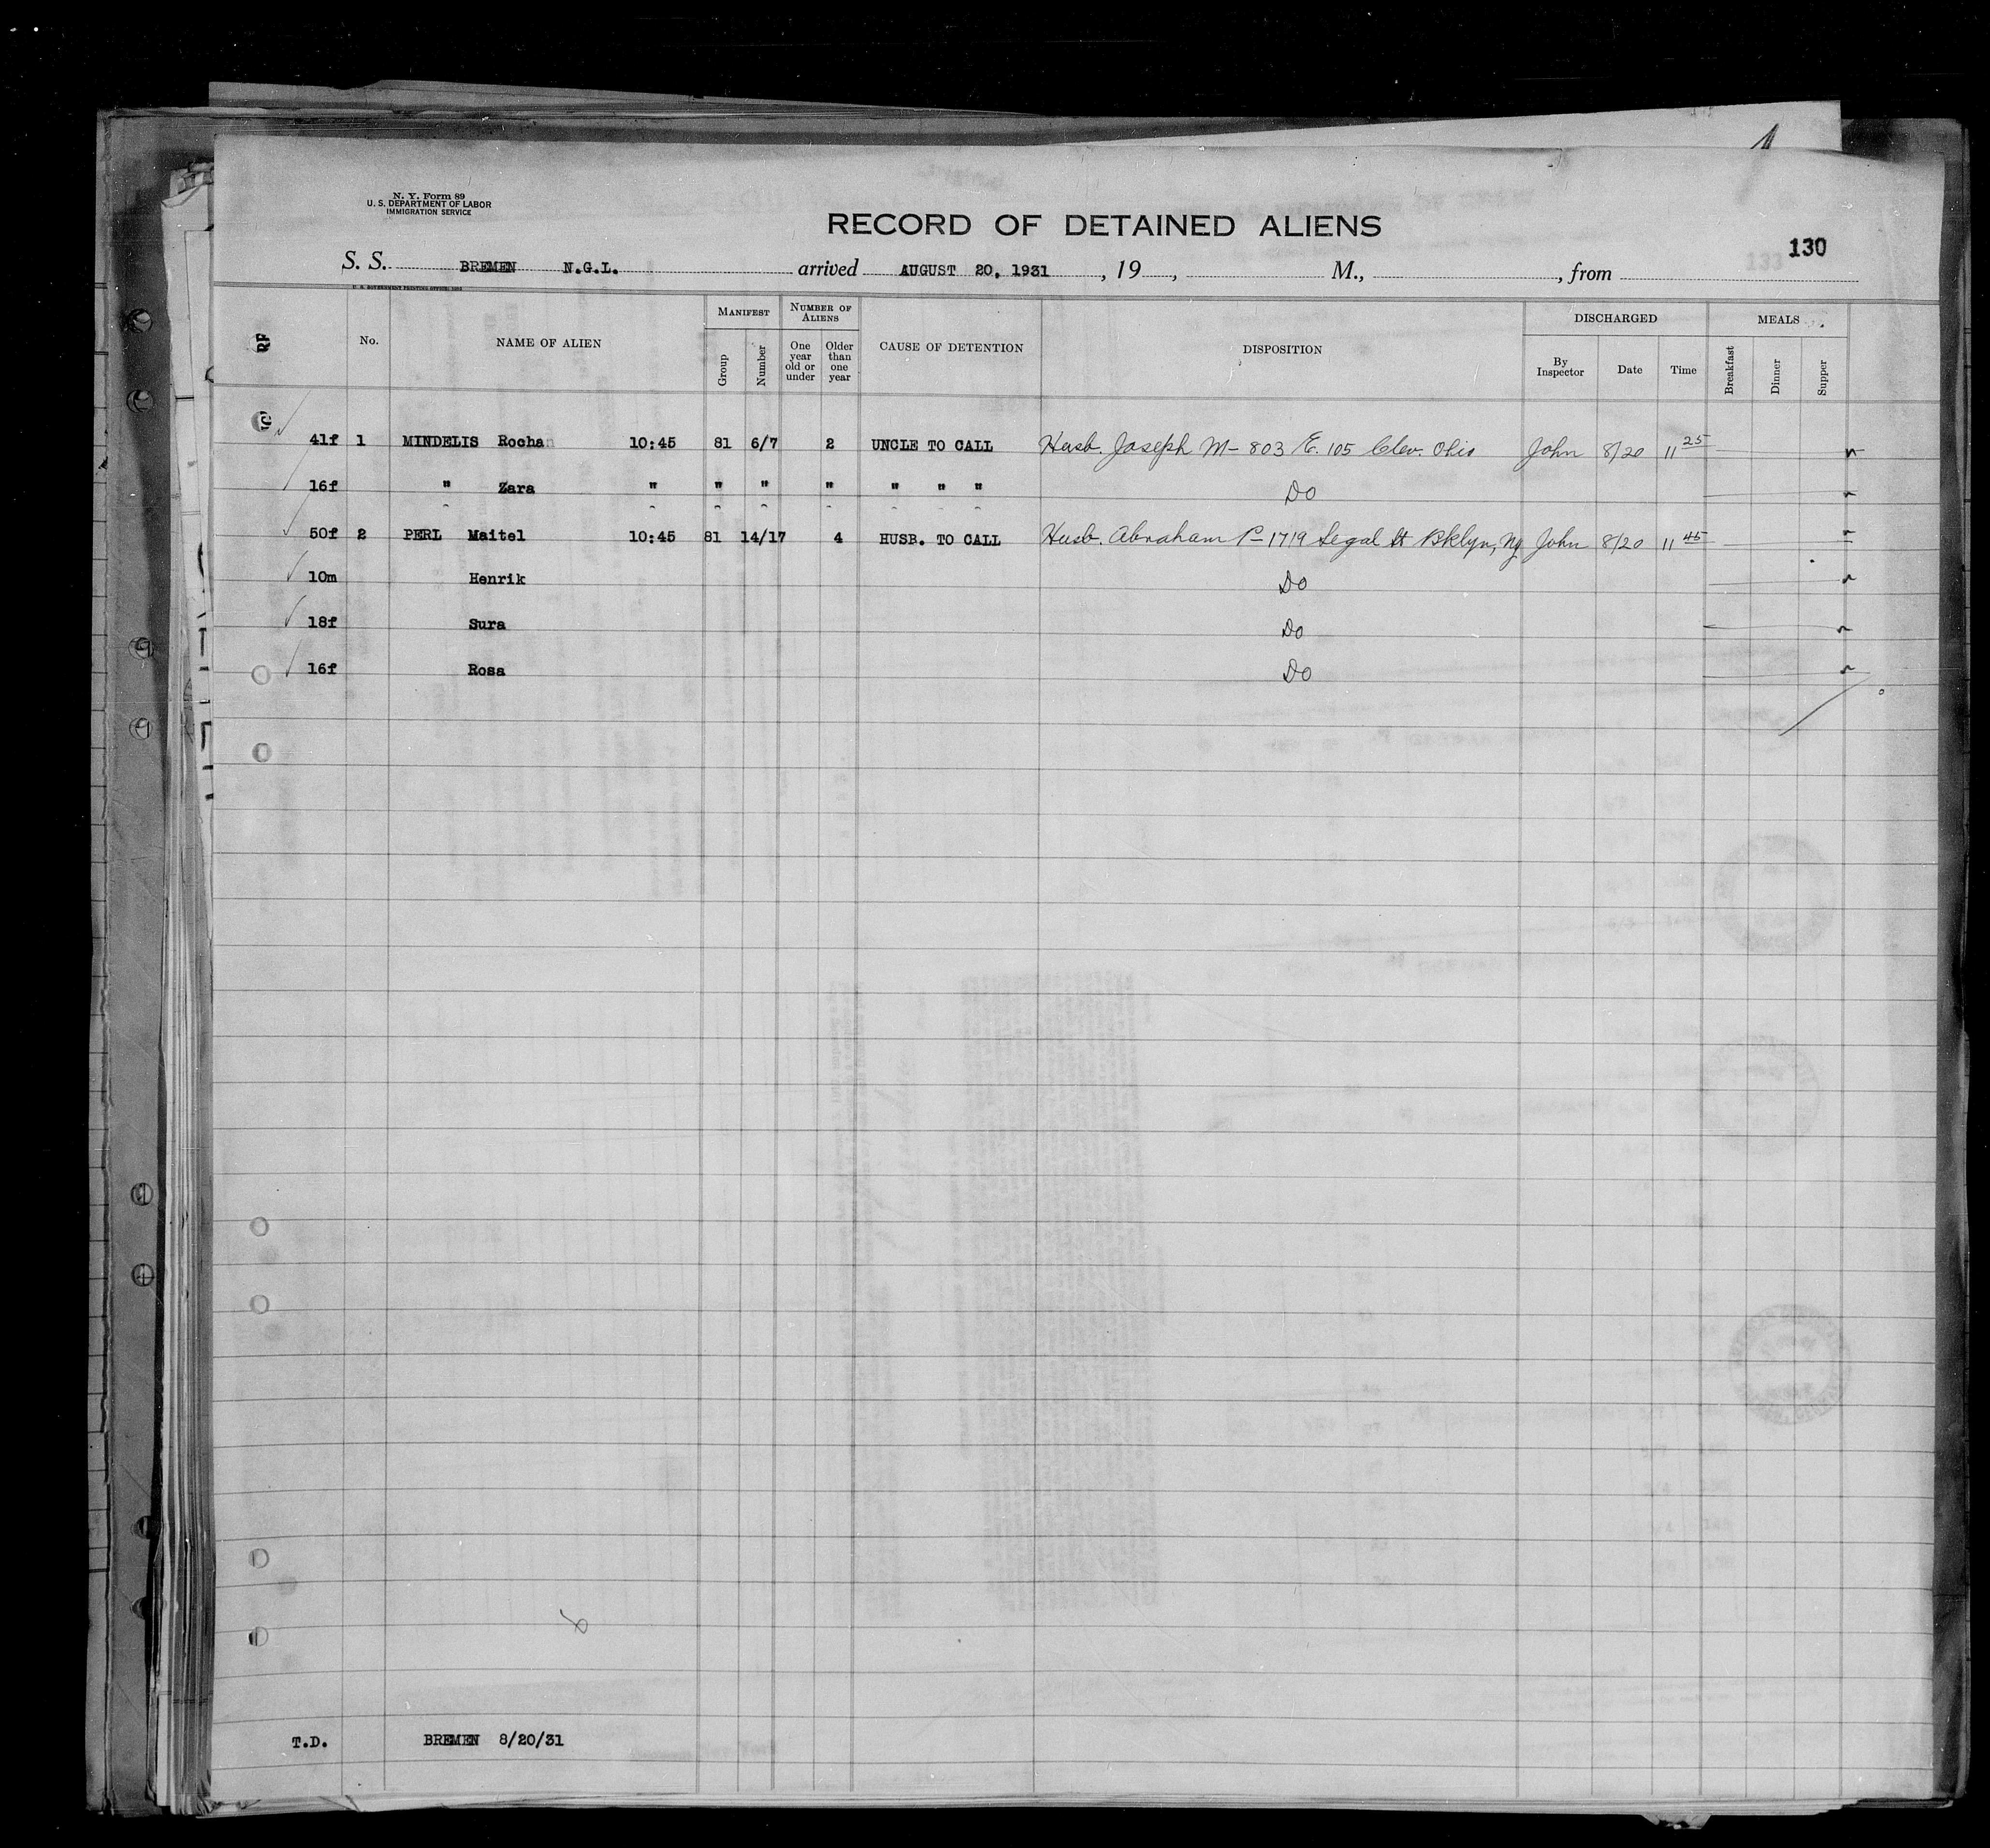 N. Y. Form 89
U. S. DEPARTMENT OF LABOR
IMMIGRATION SERVICE
RECORD OF DETAINED ALIENS
130
S. S. BREMEN N.G.L. arrived AUGUST 20, 1931, 19 , M., , from
RF No. NAME OF ALIEN MANIFEST Group Number NUMBER OF ALIENS One year old or under Older than one year CAUSE OF DETENTION DISPOSITION DISCHARGED By Inspector Date Time MEALS Breakfast Dinner Supper
41f 1 MINDELIS Rochan 10:45 81 6/7 2 UNCLE TO CALL Husb. Joseph M- 803 E. 105 Clev. Ohio John 8/20 11 25
16f " Zara " " " " " " " Do
50f 2 PERL Maitel 10:45 81 14/17 4 HUSB. TO CALL Husb. Abraham P- 1719 Segal St Bklyn, Ny John 8/20 11 45
10m Henrik Do
18f Sura Do
16f Rosa Do
T.D. BREMEN 8/20/31